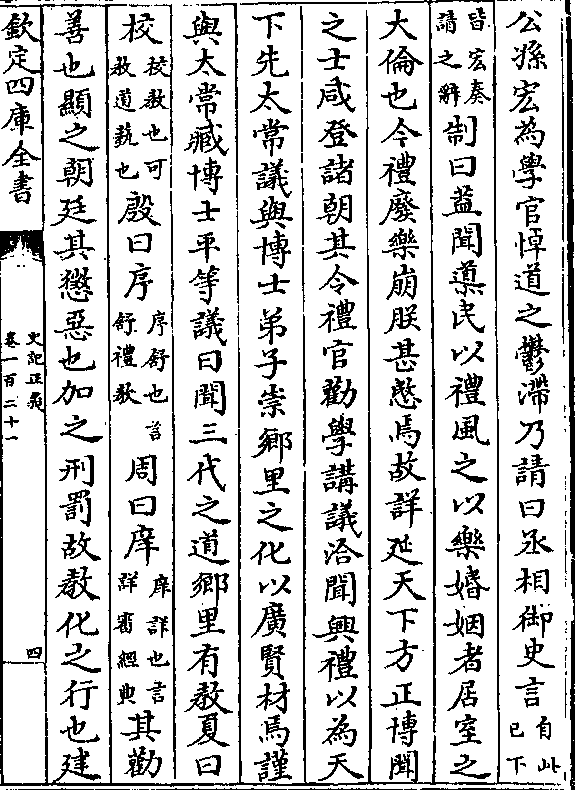 公孫宏為學官悼道之鬱滯乃請曰丞相御史言自此已下
皆宏奏請之辭制曰蓋聞導民以禮風之以樂婚姻者居室之
大倫也今禮廢樂崩朕甚愍焉故詳延天下方正博聞
之士咸登諸朝其令禮官勸學講議洽聞興禮以為天
下先太常議與博士弟子崇鄉里之化以廣賢材焉謹
與太常臧博士平等議曰聞三代之道鄉里有教夏曰
校校教也可教道藝也殷曰序序舒也言舒禮教周曰庠庠詳也言詳審經典其勸
善也顯之朝廷其懲惡也加之刑罰故教化之行也建
欽定四庫全書
史記正義
卷一百二十一
四